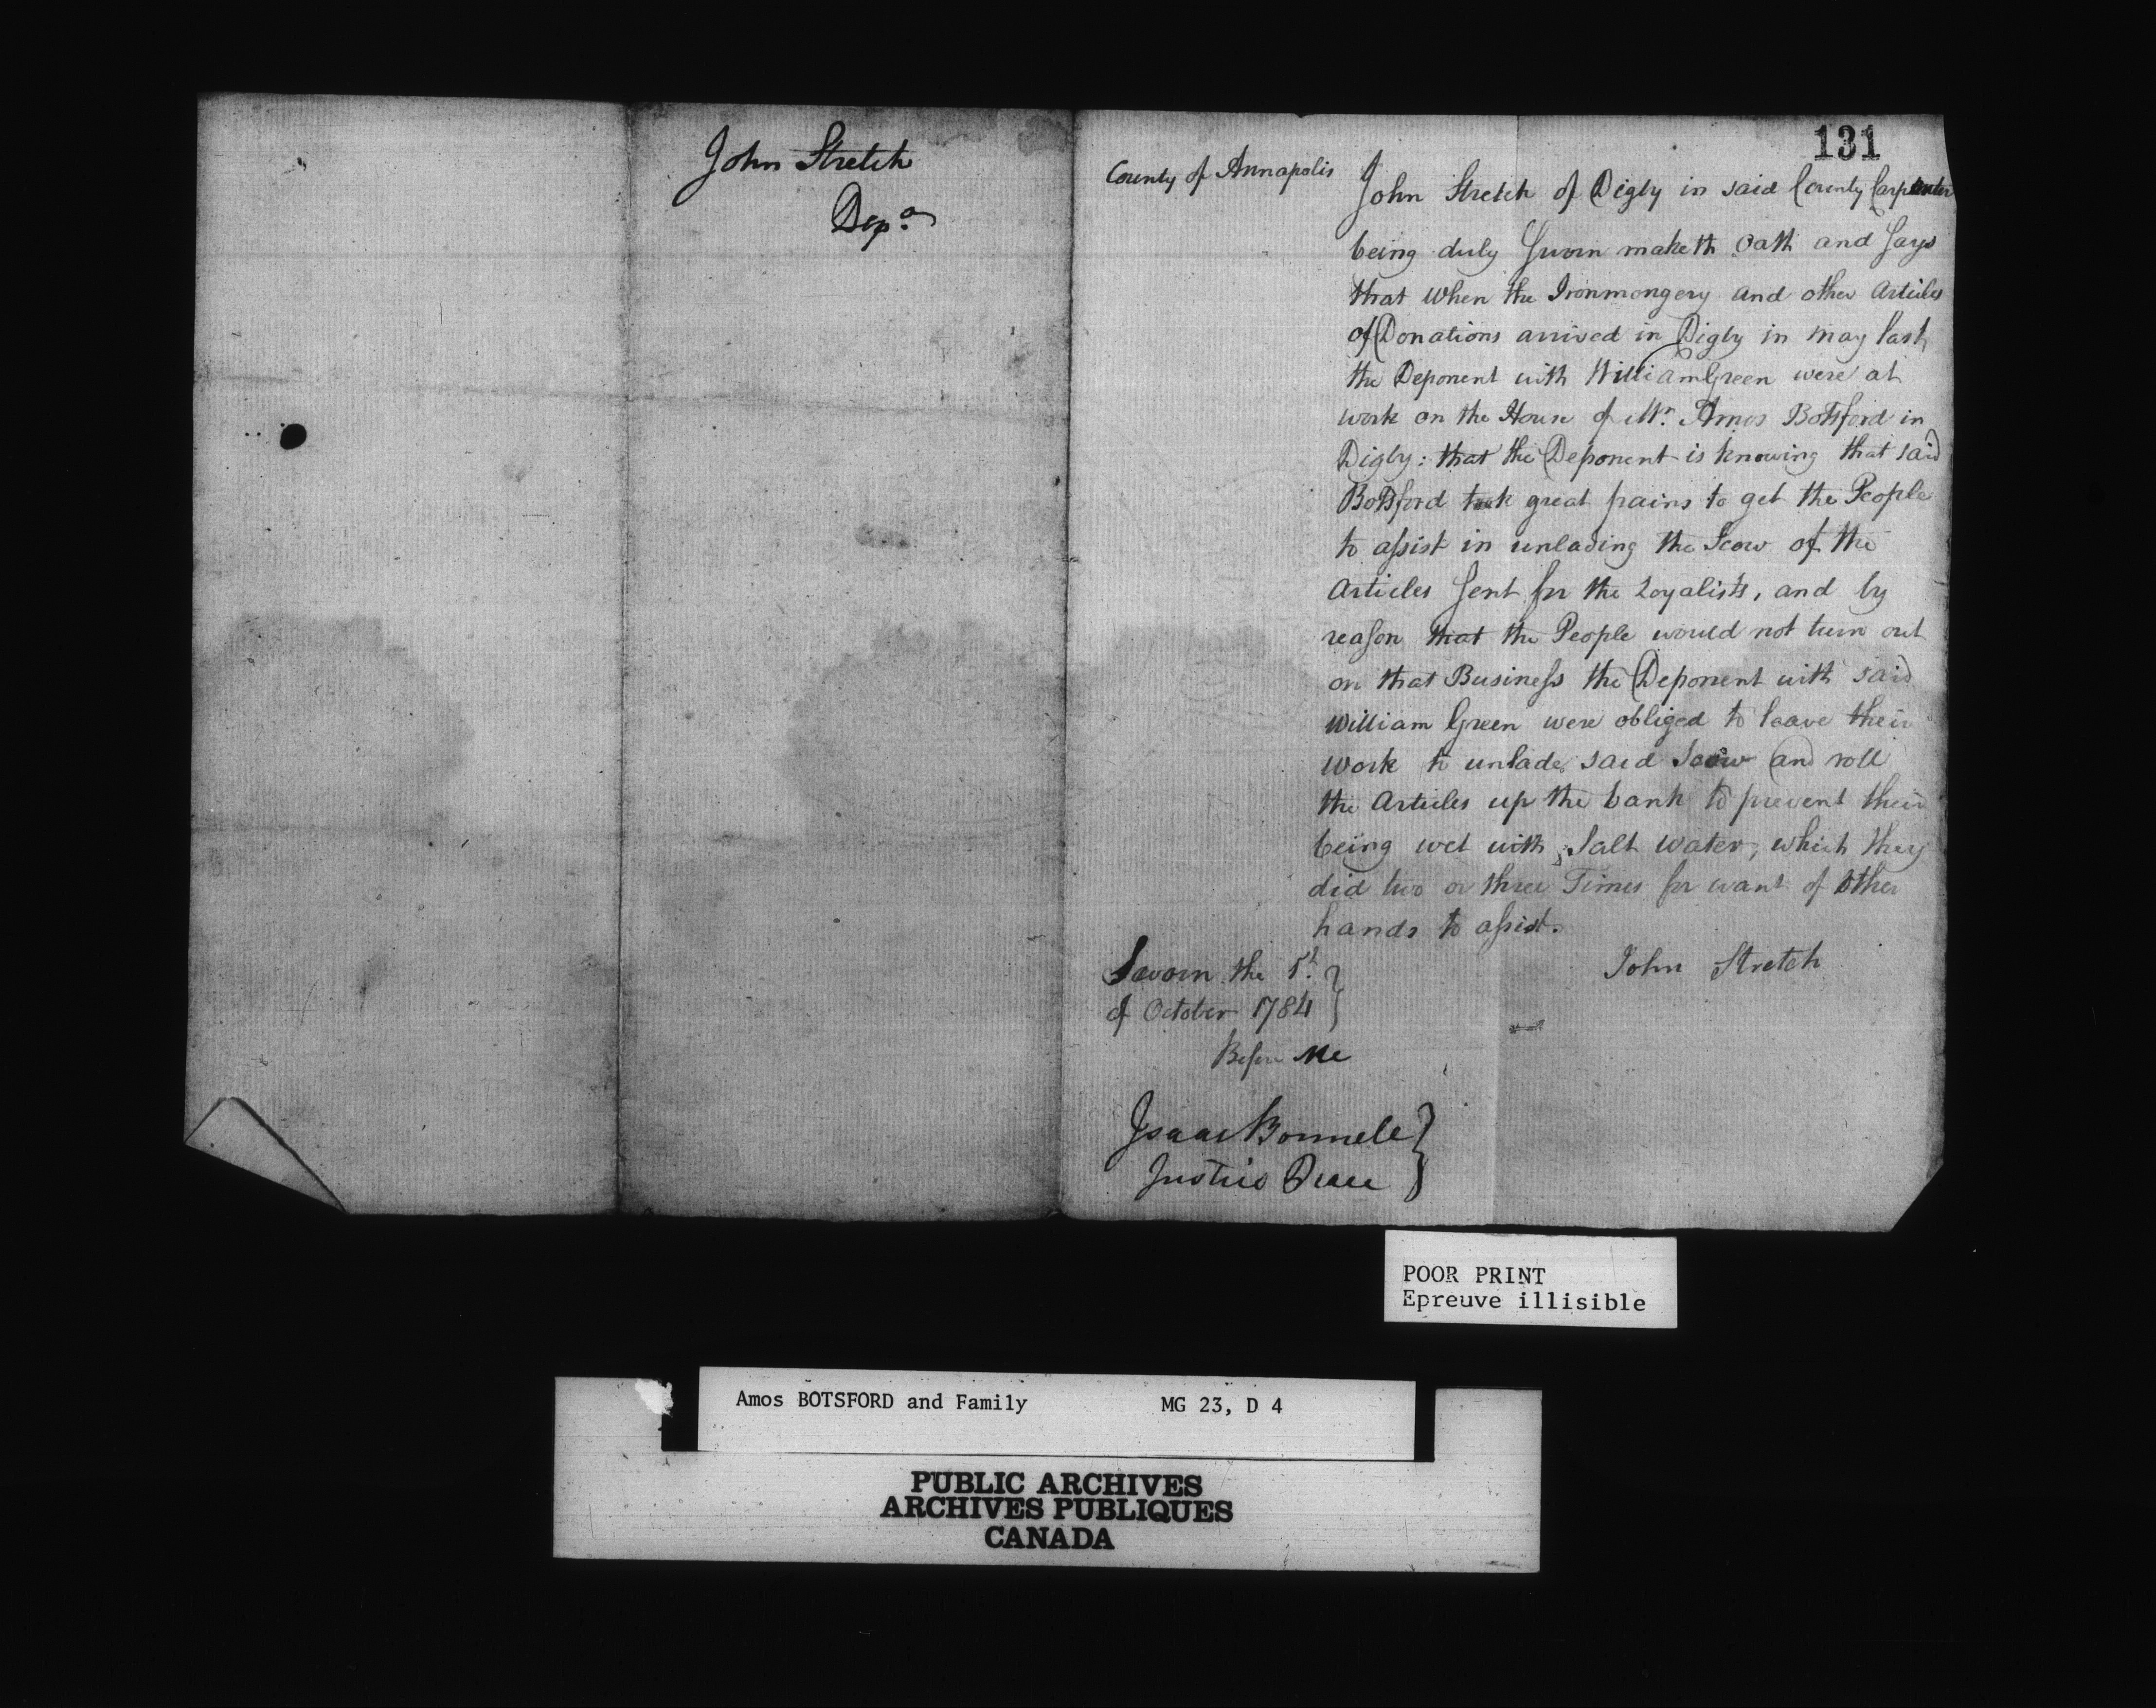 John Stretch
Dep.ⁿ
131
County of Annapolis
John Stretch of Digby in said County Carpenter
being duly Sworn maketh Oath and Says
that when the Ironmongery and other Articles
of Donations arrived in Digby in May last,
the Deponent with William Green were at
work on the House of Mr. Amos Botsford in
Digby: that the Deponent is knowing that said
Botsford took great pains to get the People
to assist in unlading the Scow of the
Articles Sent for the Loyalists, and by
reason that the People would not turn out
on that Business the Deponent with said
William Green were obliged to leave their
work to unlade said Scow and roll
the Articles up the bank to prevent their
being wet with Salt water, which they
did two or three Times for want of other
hands to assist.
John Stretch
Sworn the 1st
of October 1784
Before Me
Isaac Bonnell
Justice Peace
POOR PRINT
Epreuve illisible
Amos BOTSFORD and Family MG 23, D 4
PUBLIC ARCHIVES
ARCHIVES PUBLIQUES
CANADA